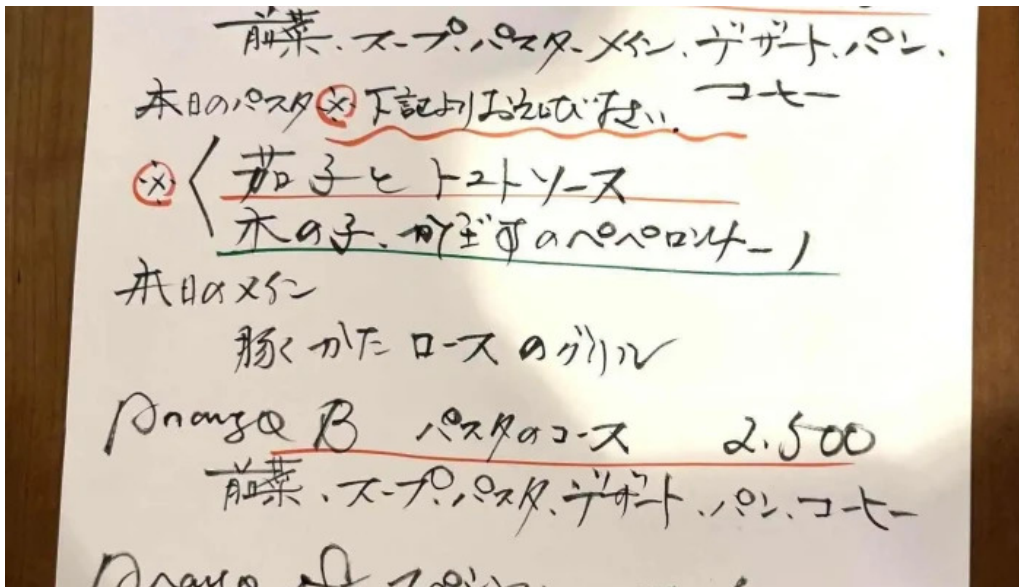 前菜、スープ、パスタ、メイン、デザート、パン、
コーヒー
本日のパスタ※下記よりおえらび下さい。
※ 茄子とトマトソース
木の子、かぼすのペペロンチーノ
本日のメイン
豚くかたロースのグリル
Pranzo B パスタのコース 2.500
前菜、スープ、パスタ、デザート、パン、コーヒー
Pranzo